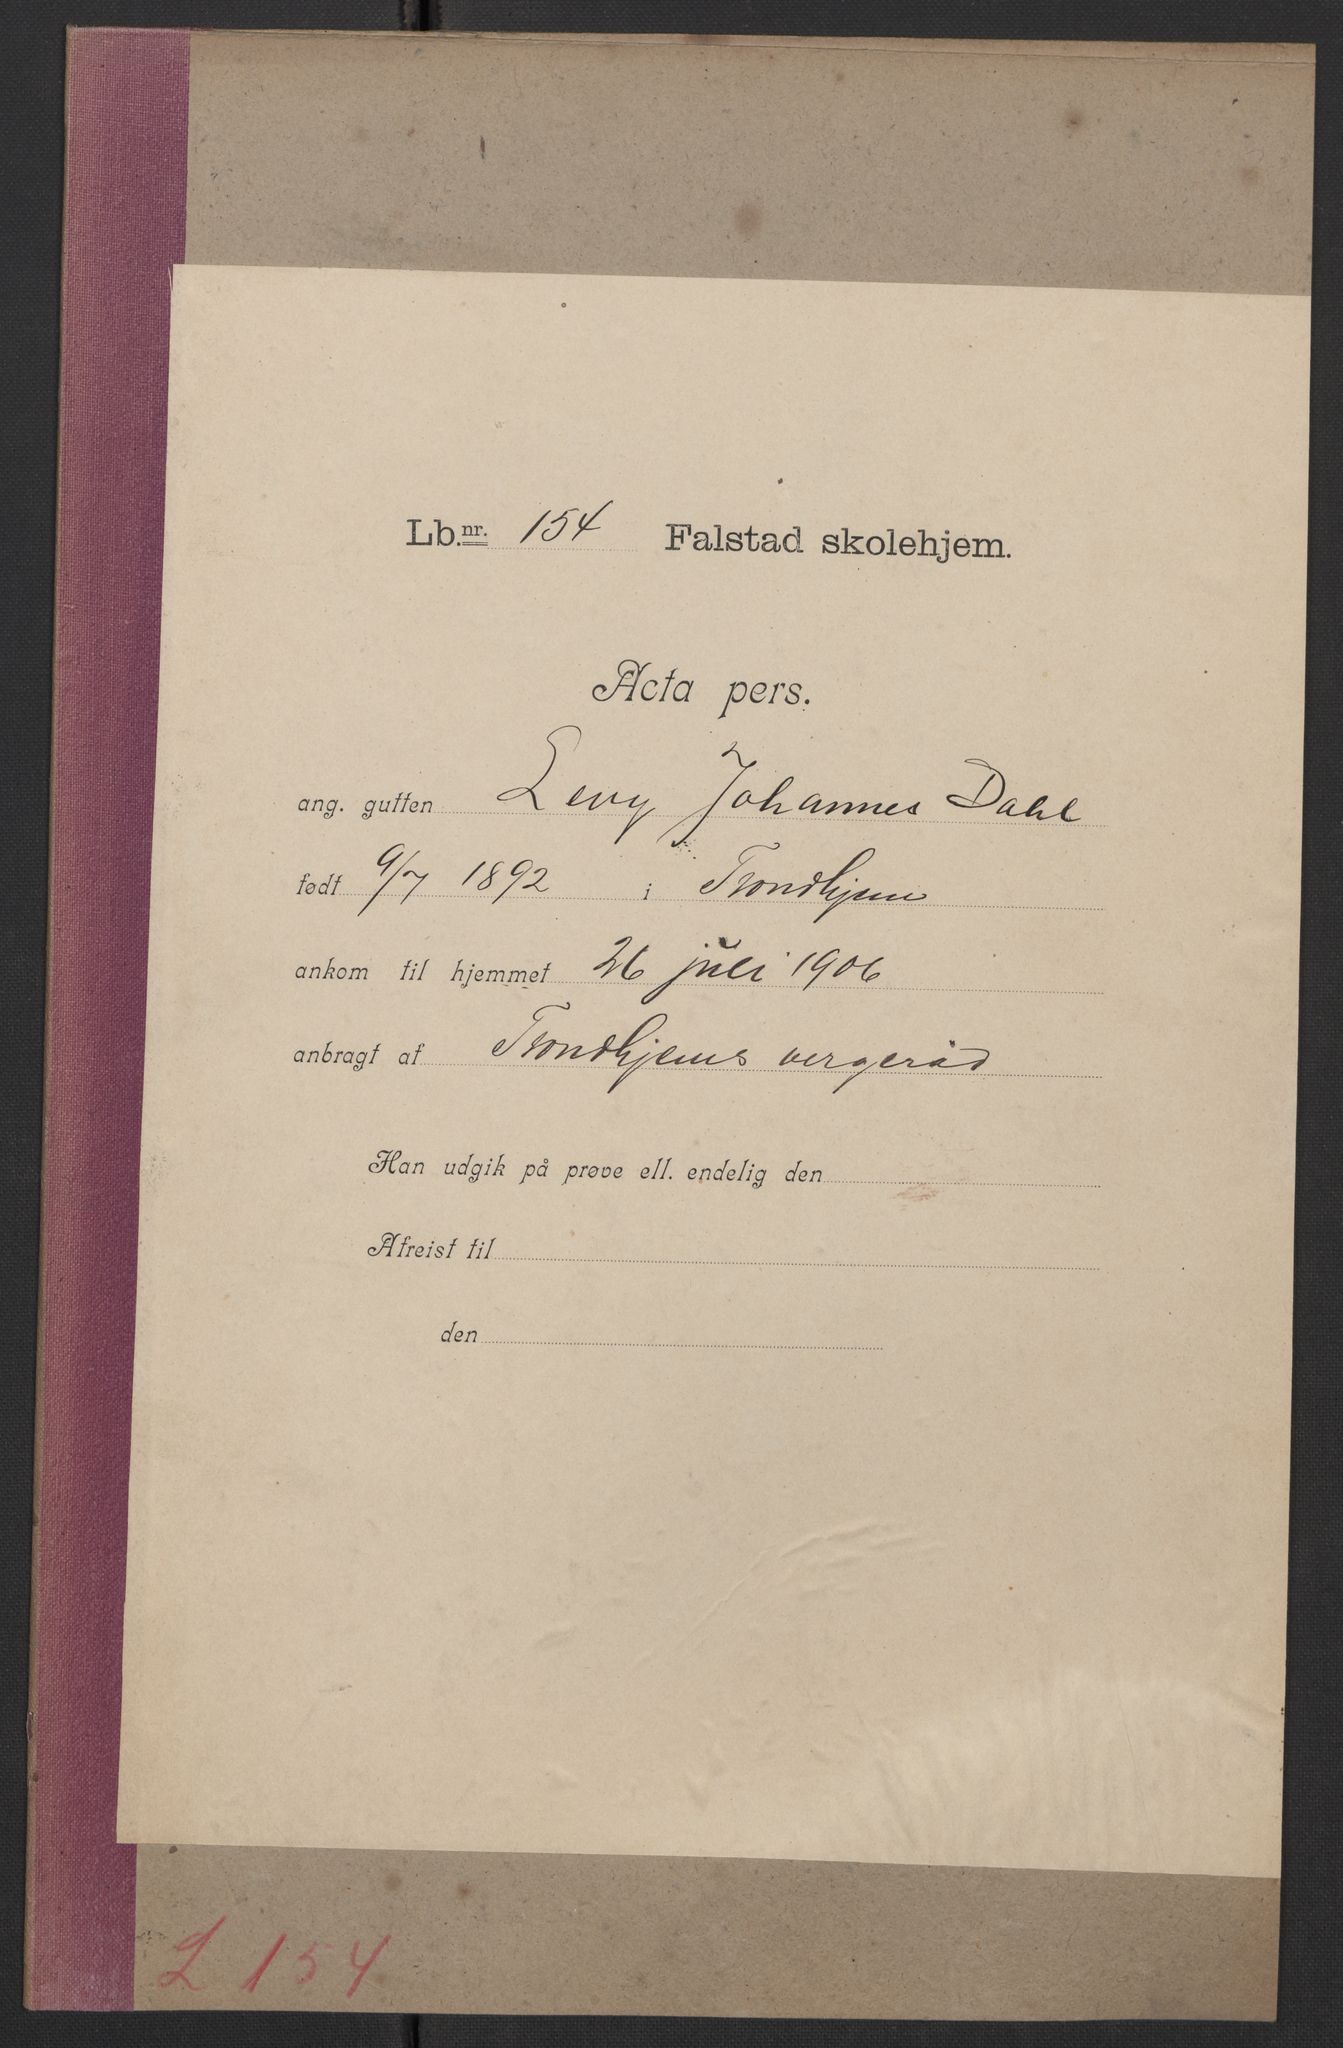 Lb.nr. 154 Falstad skolehjem.
Acta pers.
ang. gutten Levy Johannes Dahl
født 9/7 1892 i Trondhjem
ankom til hjemmet 26 juli 1906
anbragt af Trondhjems vergeråd
Han udgik på prøve ell. endelig den
Afreist til
den
L 154